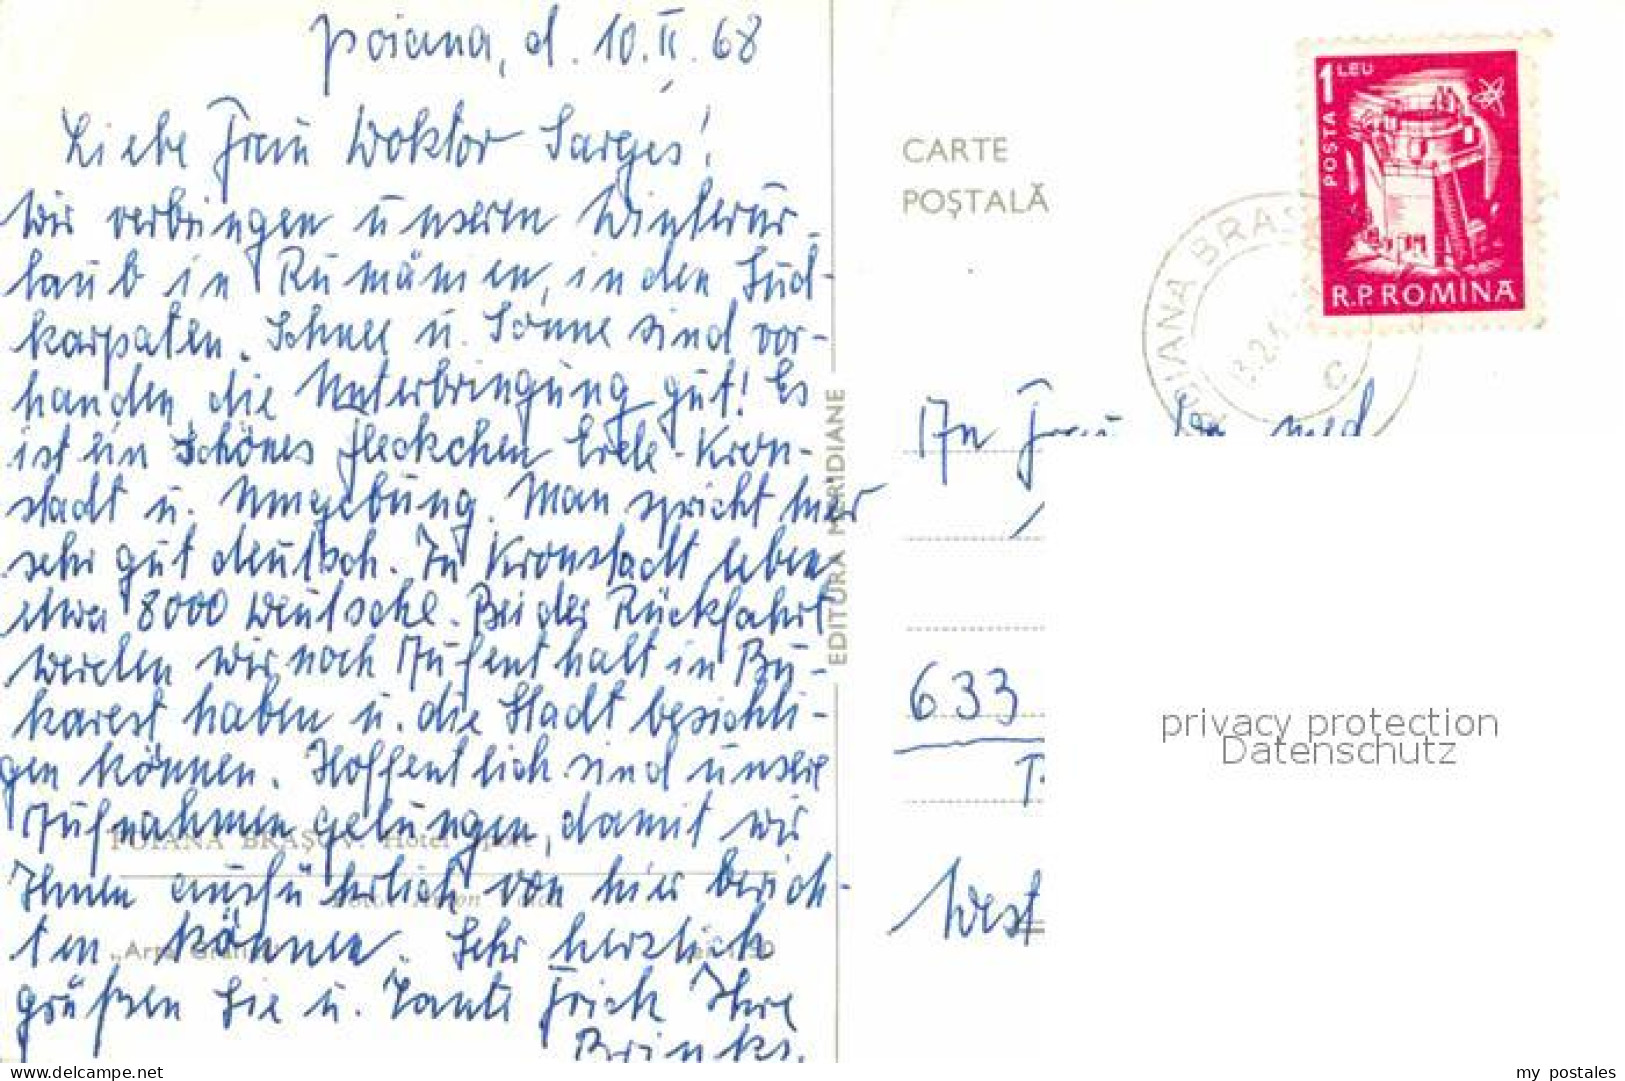 Poiana, d. 10.II.68
Liebe Frau Doktor Sarges!
Wir verbringen unseren Winterur-
laub in Rumänien, in den Süd-
karpaten. Schnee u. Sonne sind vor-
handen, die Unterbringung gut! Es
ist ein schönes Fleckchen Erde - Kron-
stadt u. Umgebung. Man spricht hier
sehr gut deutsch. In Kronstadt leben
etwa 8000 Deutsche. Bei der Rückfahrt
werden wir noch Aufenthalt in Bu-
karest haben u. die Stadt besichti-
gen können. Hoffentlich sind unsere
Aufnahmen gelungen, damit wir
Ihnen ausführlich von hier berich-
ten können. Sehr herzlich
grüßen Sie u. Tante Frick Ihre
Brinks.
POIANA BRAȘOV. Hotel Sport
EDITURA MERIDIANE
CARTE
POȘTALĂ
POSTA 1 LEU
R.P.ROMINA
POIANA BRAȘ
C
An Frau Dr. med
633
West
privacy protection
Datenschutz
www.delcampe.net
my_postales